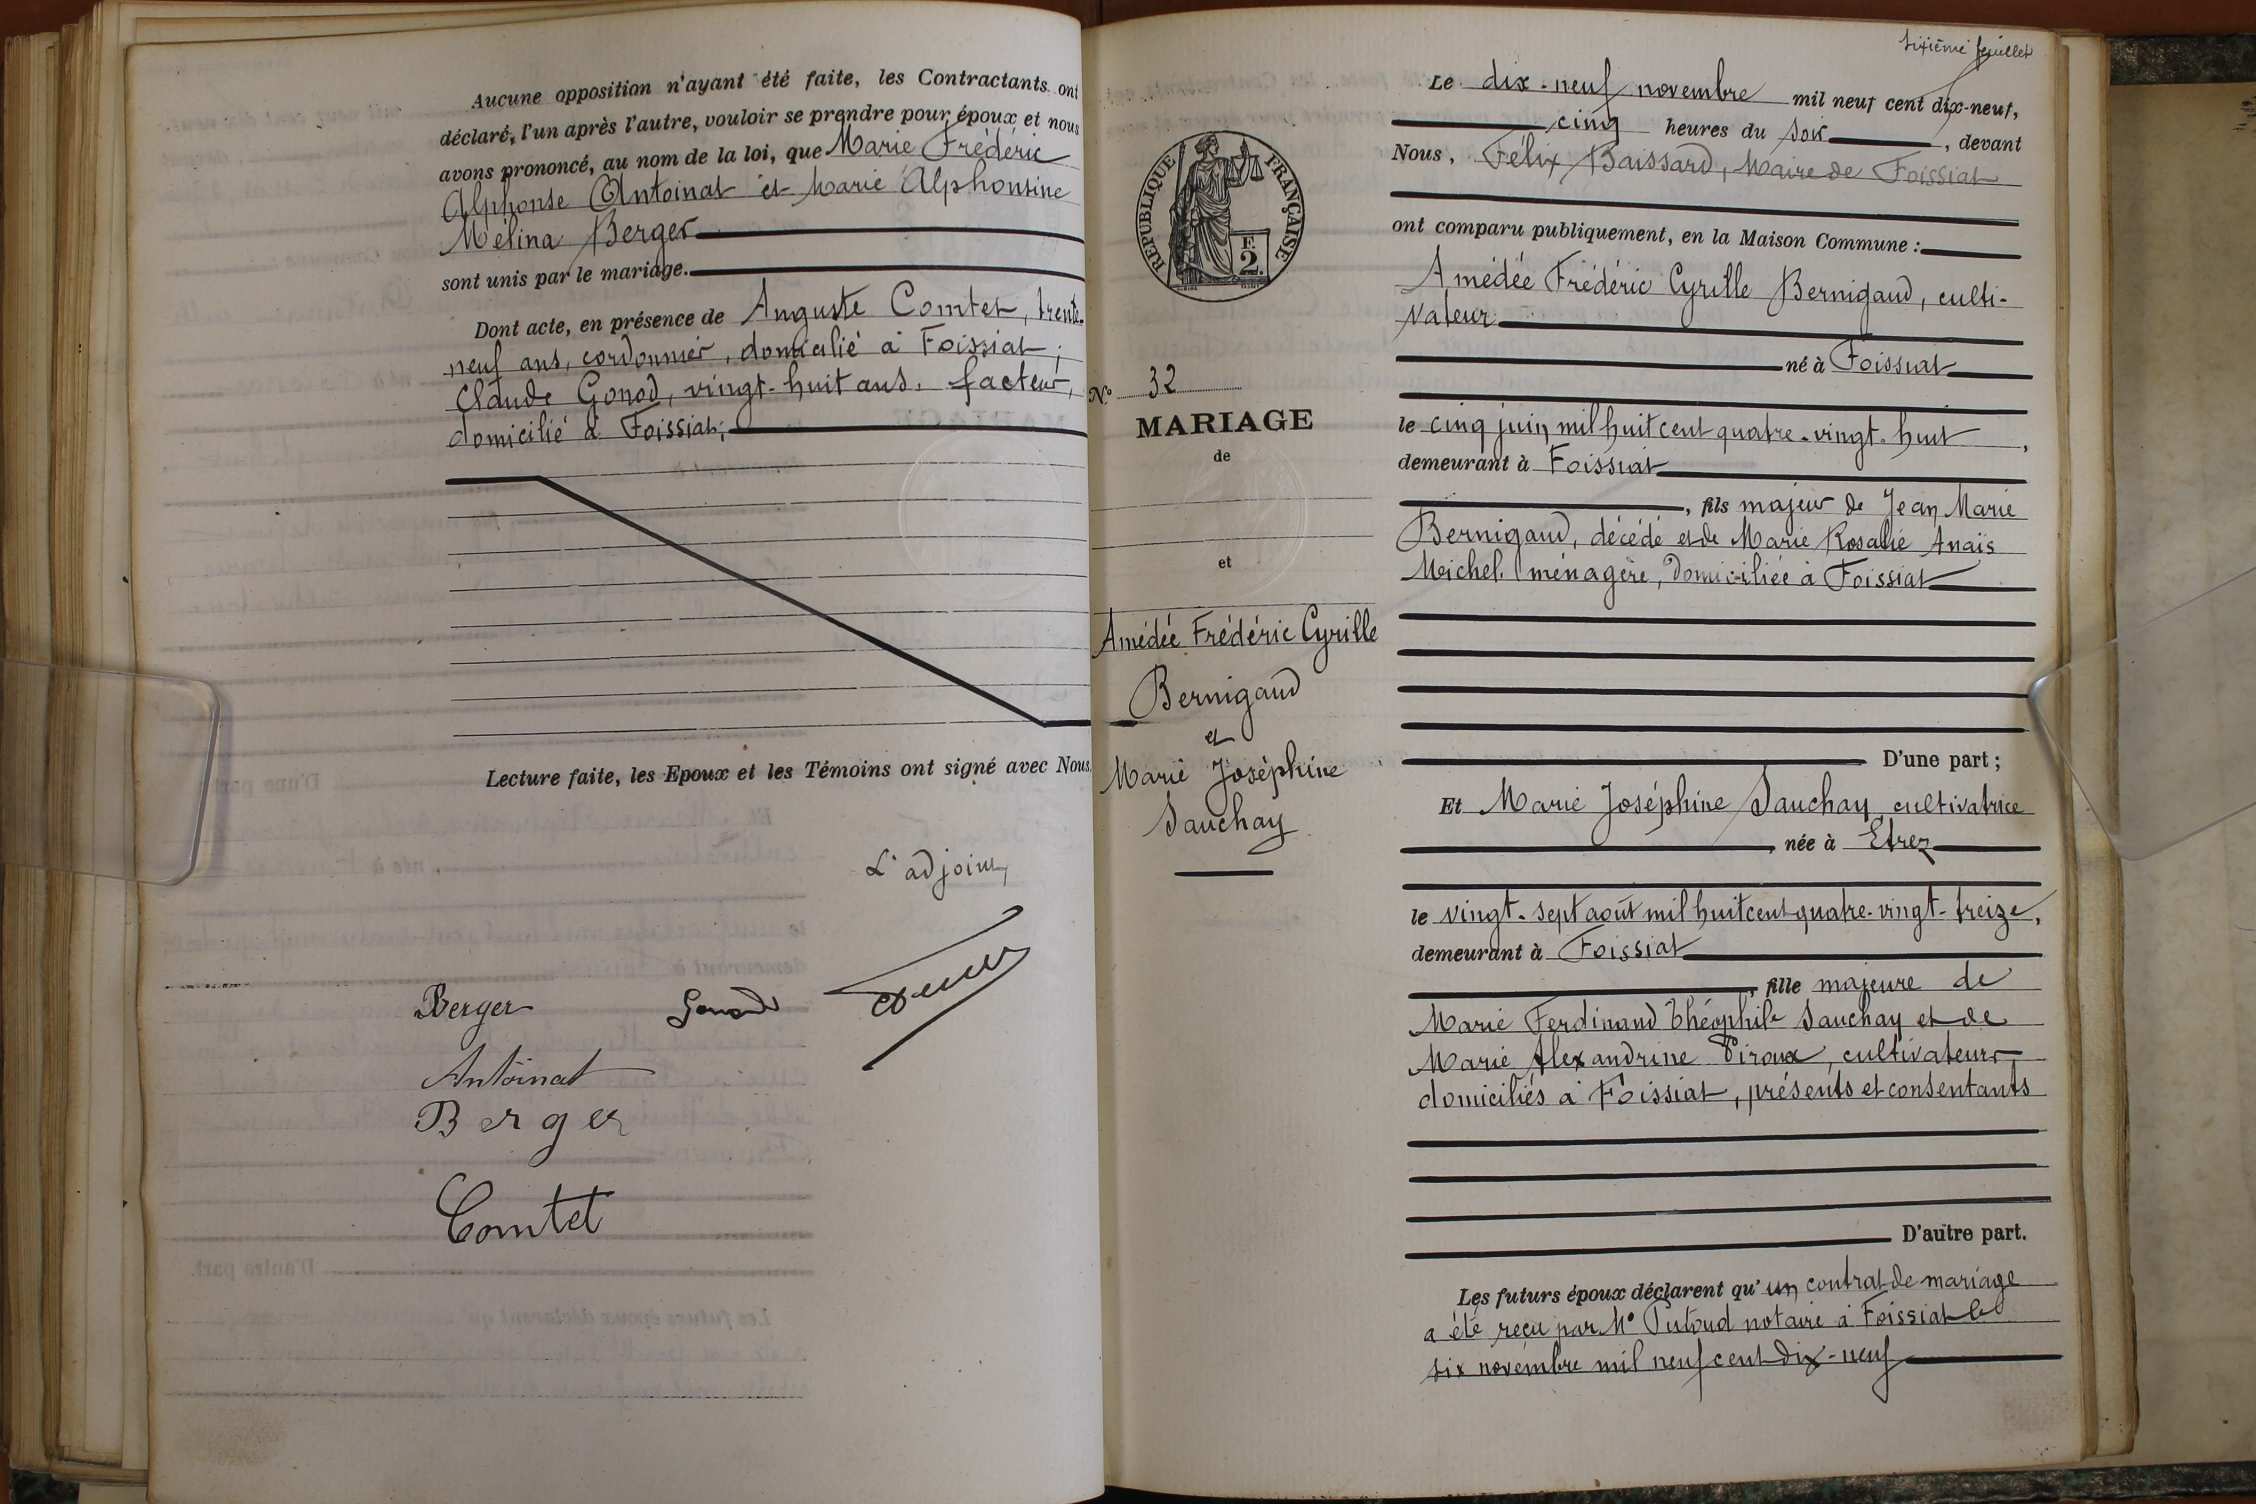 Aucune opposition n'ayant été faite, les Contractants ont
déclaré, l'un après l'autre, vouloir se prendre pour époux et nous
avons prononcé, au nom de la loi, que Marie Frédéric
Alphonse Antoinat et Marie Alphonsine
Mélina Berger
sont unis par le mariage.
Dont acte, en présence de Auguste Comtet, trente-
neuf ans, cordonnier, domicilié à Foissiat;
Claude Gonod, vingt-huit ans, facteur,
domicilié à Foissiat;
Lecture faite, les Epoux et les Témoins ont signé avec Nous.
L'adjoint,
Berger Gonod
Antoinat
Berger
Comtet
REPUBLIQUE FRANÇAISE
F.
2.
No 32
MARIAGE
de
et
Amédée Frédéric Cyrille
Bernigaud
et
Marie Joséphine
Sauchay
sixième feuillet
Le dix-neuf novembre mil neuf cent dix-neuf,
cinq heures du soir, devant
Nous, Félix Baissard, Maire de Foissiat
ont comparu publiquement, en la Maison Commune :
Amédée Frédéric Cyrille Bernigaud, culti-
vateur
né à Foissiat
le cinq juin mil huit cent quatre-vingt-huit,
demeurant à Foissiat
, fils majeur de Jean Marie
Bernigaud, décédé et de Marie Rosalie Anaïs
Michel, ménagère, domiciliée à Foissiat
D'une part ;
Et Marie Joséphine Sauchay, cultivatrice
, née à Etrez
le vingt-sept août mil huit cent quatre-vingt-treize,
demeurant à Foissiat
, fille majeure de
Marie Ferdinand Théophile Sauchay et de
Marie Alexandrine Piroux, cultivateurs
domiciliés à Foissiat, présents et consentants
D'autre part.
Les futurs époux déclarent qu'un contrat de mariage
a été reçu par Me Putoud notaire à Foissiat le
six novembre mil neuf cent dix-neuf